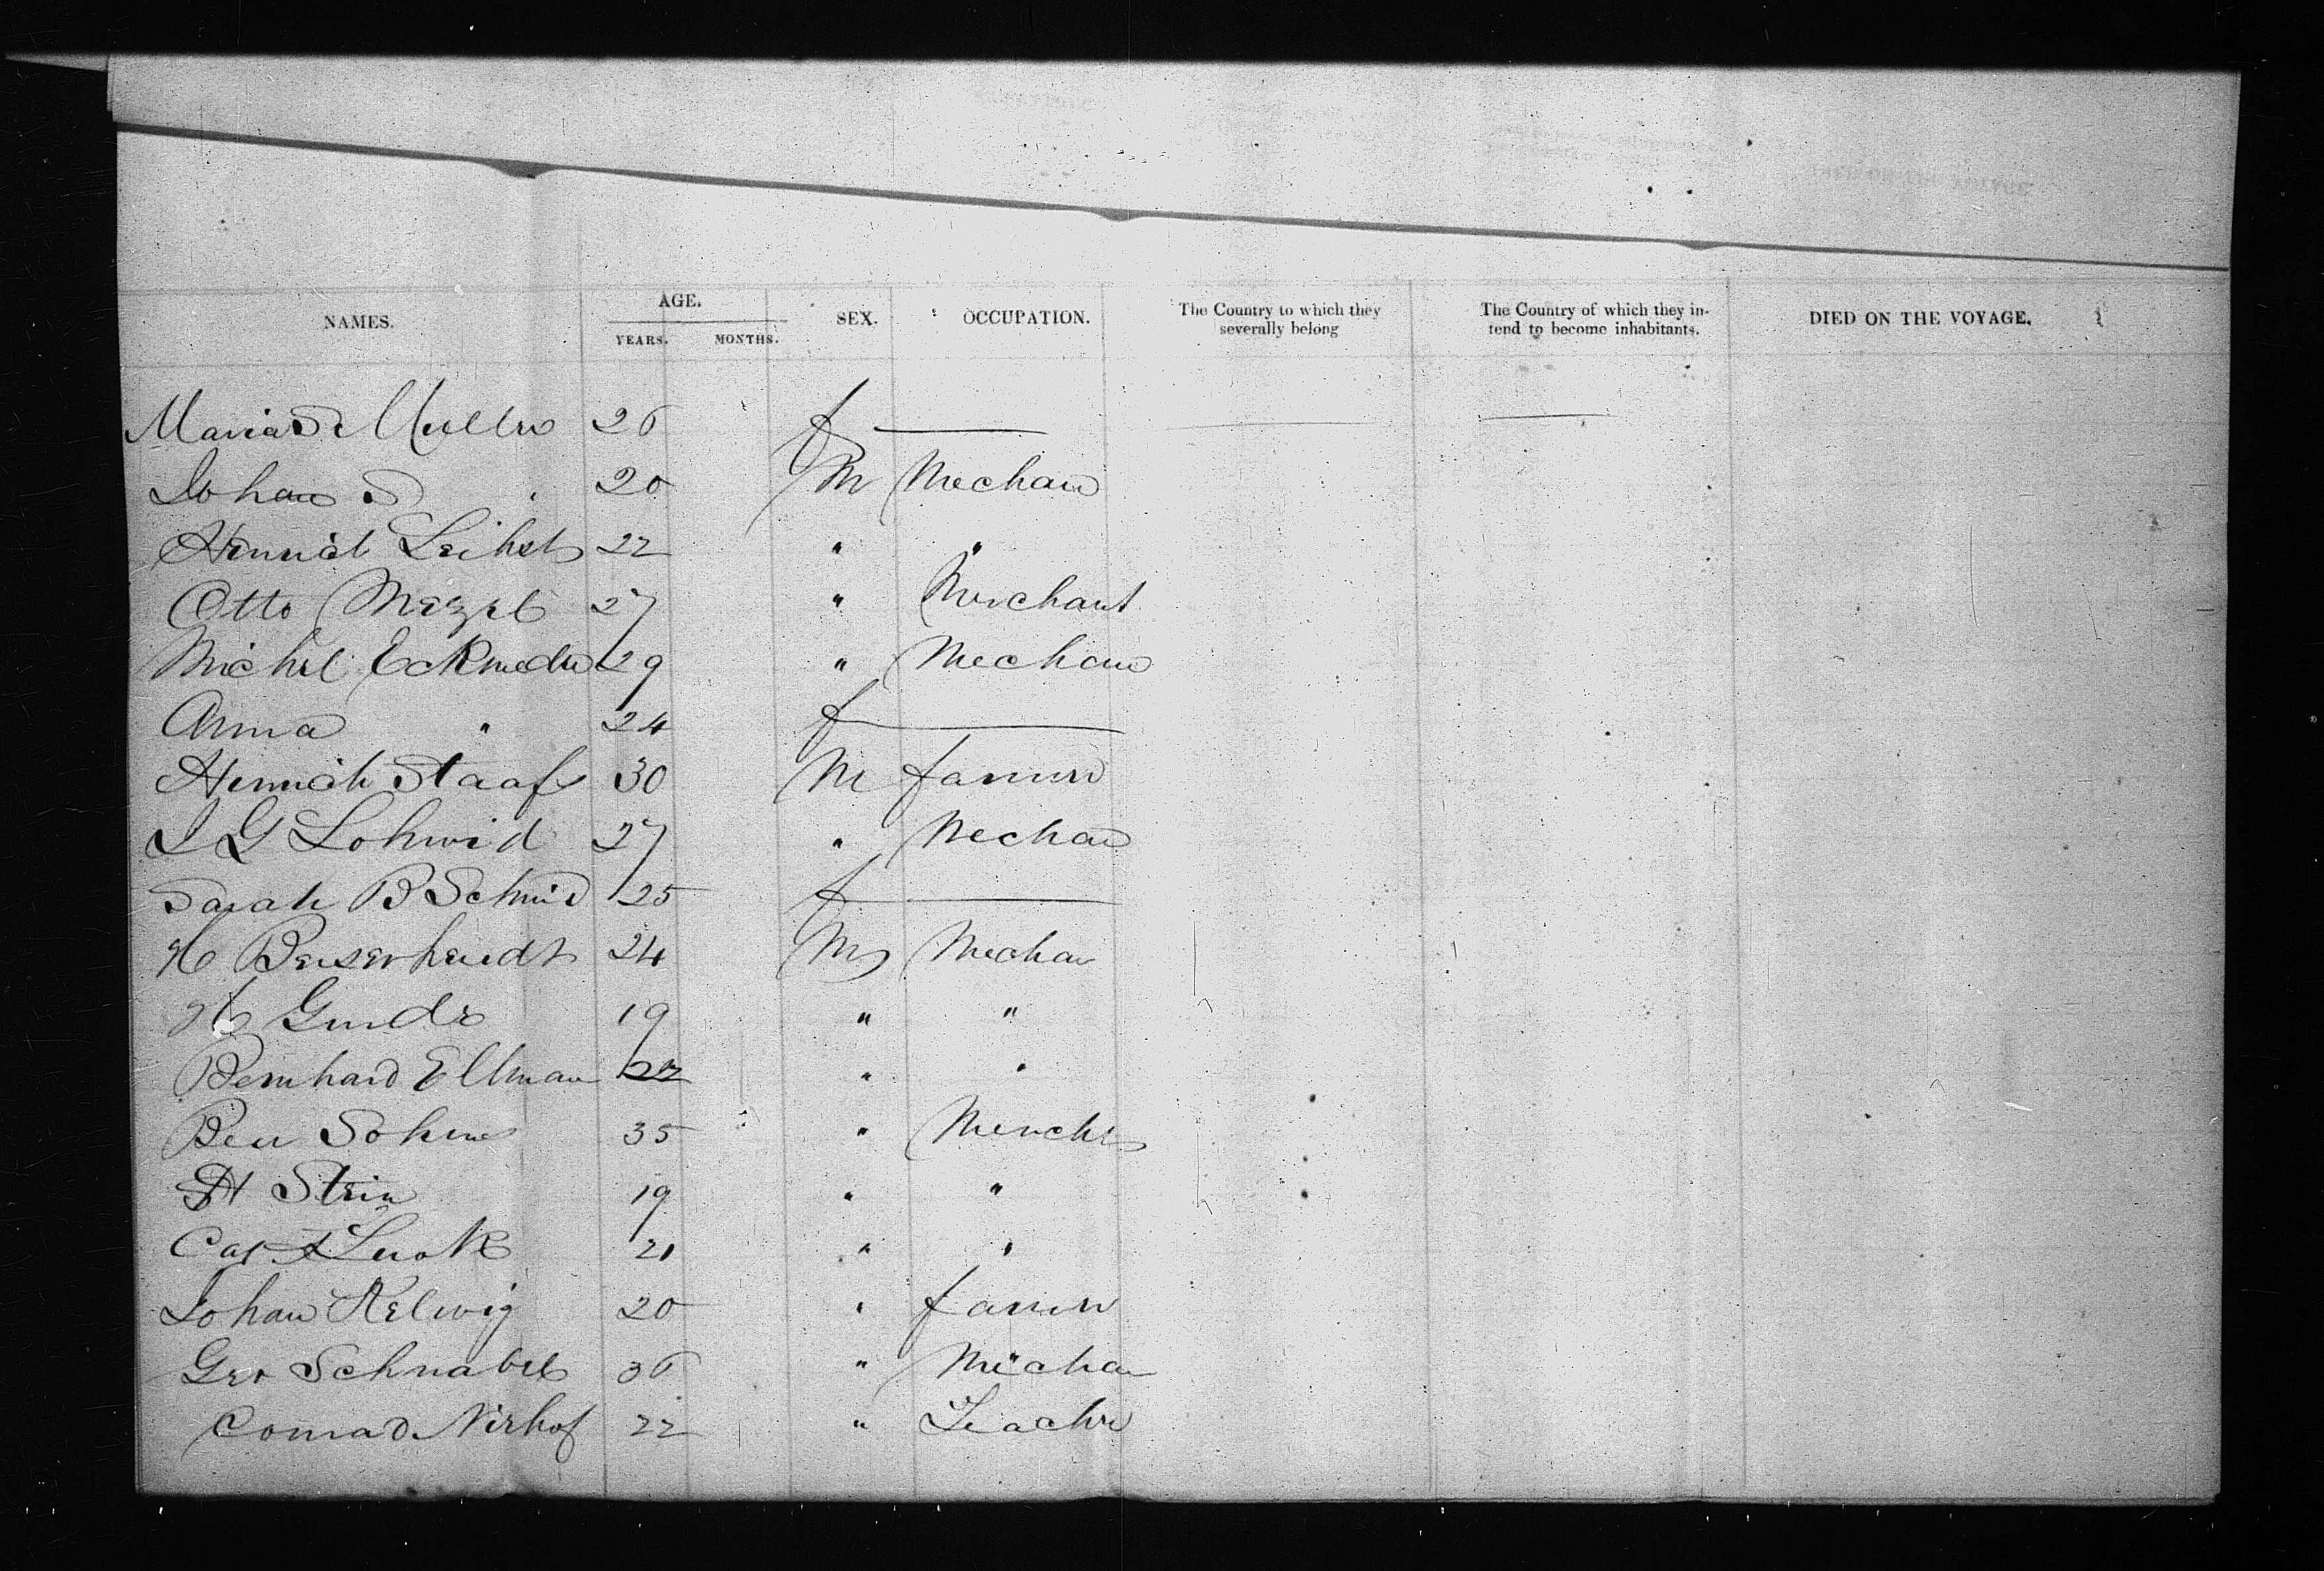 NAMES. AGE. SEX. OCCUPATION. The Country to which they severally belong The Country of which they intend to become inhabitants. DIED ON THE VOYAGE.
YEARS. MONTHS.
Maria S Muller 26 f
Johan S 20 M Mechan
22 " "
Otto 27 " Merchant
Michel 29 " Mechan
Anna " 24 f
Hennich Staaf 30 M farmer
J G Lohwid 27 " Mechan
Sarah B Schmid 25 f
H 24 M Mechan
H 19 " "
Bernhard Ellman 22 " "
Ben Sohm 35 " Mercht
H Stein 19 " "
21 " "
Johan Helwig 20 " farmer
Geo Schnabel 36 " Mechan
Conrad Nirhof 22 " Teacher